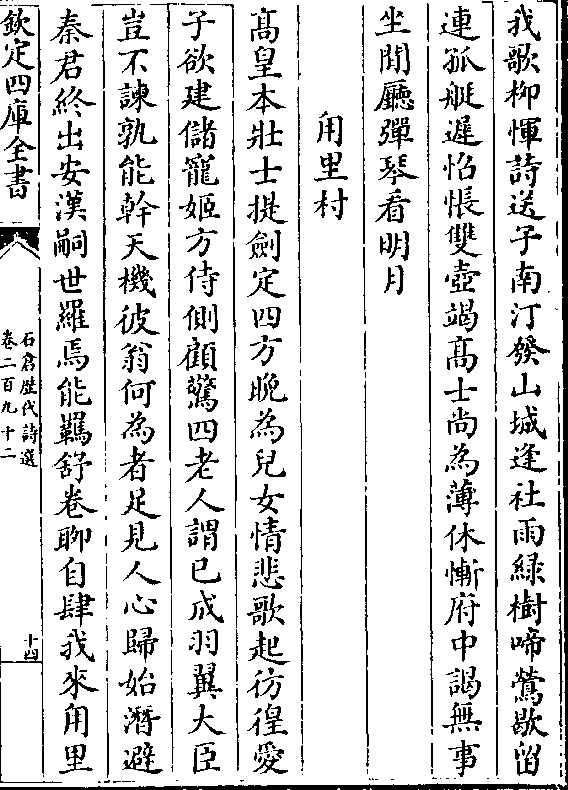 我歌柳惲詩送子南汀發山城逢社雨綠樹啼鶯歇留
連孤艇遲怊悵雙壺竭髙士尚為薄休慚府中謁無事
坐聞廳彈琴看明月
甪里村
髙皇本壯士提劍定四方晚為兒女情悲歌起彷徨愛
子欲建儲寵姬方侍側顧驚四老人謂已成羽翼大臣
豈不諫孰能幹天機彼翁何為者足見人心歸始潛避
秦君終出安漢嗣世羅焉能羈舒卷聊自肆我來甪里
欽定四庫全書
石倉歷代詩選
卷二百九十二
十四